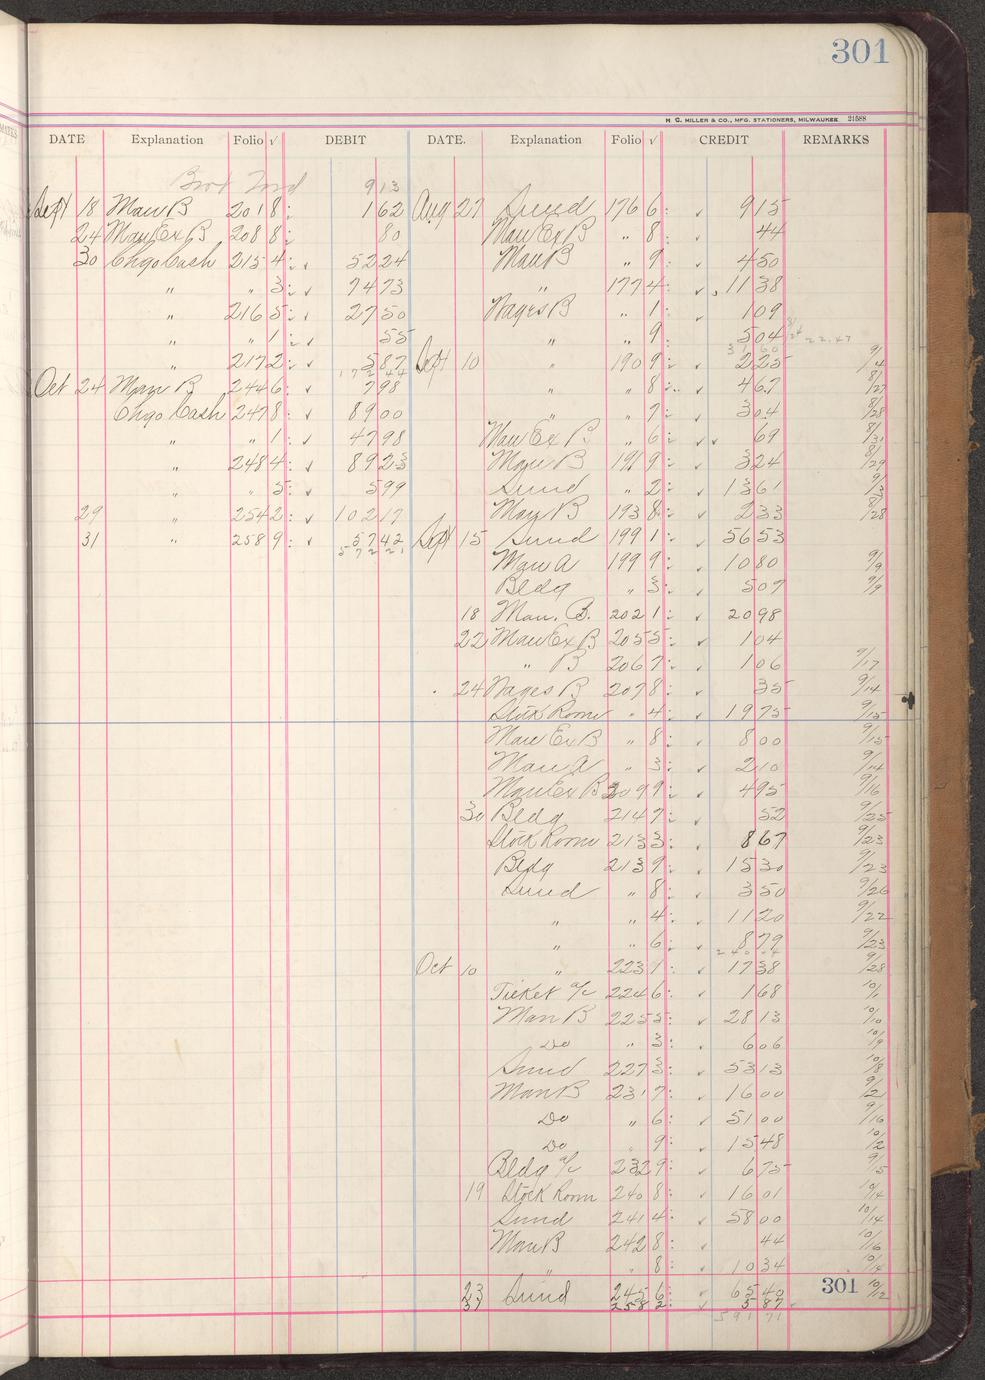 301
H. G. MILLER & CO., MFG. STATIONERS, MILWAUKEE 21588
DATE Explanation Folio √ DEBIT DATE. Explanation Folio √ CREDIT REMARKS
Brot Ford 913
Sept 18 Man B 201 8 1 62 Aug 27 Sund 176 6 9 15
24 Man Ex B 208 8 80 Man Ex B " 8 44
30 Chgo Cash 215 4 52 24 Man B " 9 4 50
" " 3 74 73 " 177 4 11 38
" 216 5 27 50 Wages B " 1 1 09
" " 1 55 " " 9 5 04 22.47
" 217 2 5 87 Sept 10 " 190 9 2 25 9/4
Oct 24 Man B 244 6 7 98 " " 8 4 67 8/27
Chgo Cash 247 8 89 00 " " 7 3 04 8/28
" " 1 47 98 Man Ex B " 6 69 8/31
" 248 4 89 23 Man B 191 9 3 24 8/29
" " 5 5 99 Sund " 2 13 61 9/3
29 " 254 2 102 17 Man B 193 8 2 33 8/28
31 " 258 9 57 42 Sept 15 Sund 199 1 56 53
572 21
Man A 199 9 10 80 9/9
Bldg " 3 5 07 9/9
18 Man. B. 202 1 20 98
22 Man Ex B 205 5 1 04
" B 206 7 1 06 9/17
24 Wages B 207 8 35 9/14
Stock Room " 4 19 75 9/15
Man Ex B " 8 8 00 9/15
Man A " 3 2 10 9/14
Man Ex B 209 9 4 95 9/16
30 Bldg 214 7 52 9/25
Stock Room 213 3 8 67 9/23
Bldg 213 9 15 30 9/23
Sund " 8 3 50 9/26
" " 4 11 20 9/22
" " 6 8 79 9/23
Oct 10 " 223 1 17 38 9/28
Ticket a/c 224 6 1 68 10/1
Man B 225 5 28 13 10/10
Do " 3 6 06 10/9
Sund 227 3 53 13 10/8
Man B 231 7 16 00 9/2
Do " 6 51 00 9/16
Do " 9 15 48 10/2
Bldg a/c 232 9 6 75 9/15
19 Stock Room 240 8 16 01 10/14
Sund 241 4 58 00 10/14
Man B 242 8 44 10/16
" " 8 10 34 10/14
23 Sund 245 6 65 40 301 10/12
31 258 2 5 87
591 71